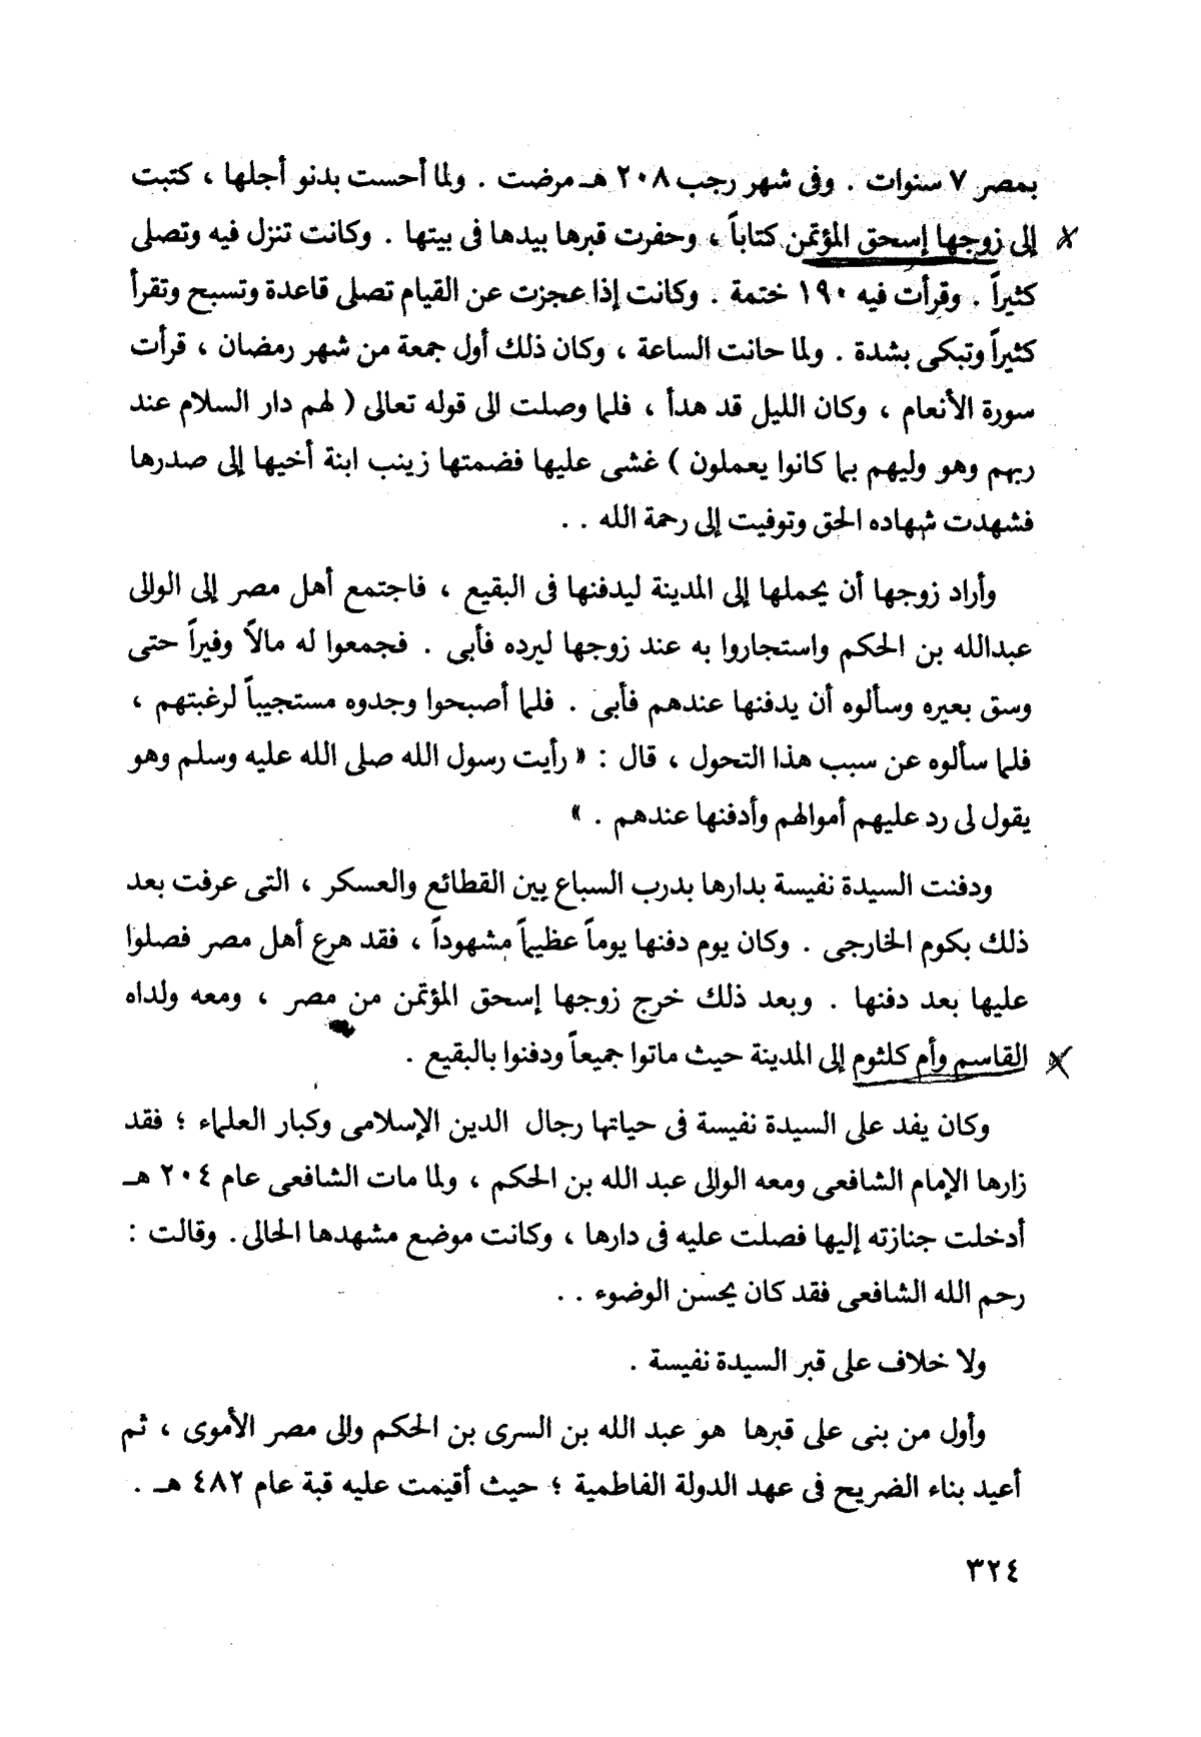 بمصر ٧ سنوات . وفى شهر رجب ٢٠٨ هـ مرضت . ولما أحست بدنو أجلها ، كتبت
إلى زوجها إسحق المؤتمن كتاباً ، وحفرت قبرها بيدها فى بيتها . وكانت تنزل فيه وتصلى
كثيراً . وقرأت فيه ١٩٠ ختمة . وكانت إذا عجزت عن القيام تصلى قاعدة وتسبح وتقرأ
كثيراً وتبكى بشدة . ولما حانت الساعة ، وكان ذلك أول جمعة من شهر رمضان ، قرأت
سورة الأنعام ، وكان الليل قد هدأ ، فلما وصلت الى قوله تعالى ( لهم دار السلام عند
ربهم وهو وليهم بما كانوا يعملون ) غشى عليها فضمتها زينب ابنة أخيها إلى صدرها
فشهدت شهاده الحق وتوفيت إلى رحمة الله . .
وأراد زوجها أن يحملها إلى المدينة ليدفنها فى البقيع ، فاجتمع أهل مصر إلى الوالى
عبدالله بن الحكم واستجاروا به عند زوجها ليرده فأبى . فجمعوا له مالاً وفيراً حتى
وسق بعيره وسألوه أن يدفنها عندهم فأبى . فلما أصبحوا وجدوه مستجيباً لرغبتهم ،
فلما سألوه عن سبب هذا التحول ، قال : « رأيت رسول الله صلى الله عليه وسلم وهو
يقول لى رد عليهم أموالهم وأدفنها عندهم . »
ودفنت السيدة نفيسة بدارها بدرب السباع بين القطائع والعسكر ، التى عرفت بعد
ذلك بكوم الخارجى . وكان يوم دفنها يوماً عظيماً مشهوداً ، فقد هرع أهل مصر فصلوا
عليها بعد دفنها . وبعد ذلك خرج زوجها إسحق المؤتمن من مصر ، ومعه ولداه
القاسم وأم كلثوم إلى المدينة حيث ماتوا جميعاً ودفنوا بالبقيع .
وكان يفد على السيدة نفيسة فى حياتها رجال الدين الإسلامى وكبار العلماء ؛ فقد
زارها الإمام الشافعى ومعه الوالى عبد الله بن الحكم ، ولما مات الشافعى عام ٢٠٤ هـ
أدخلت جنازته إليها فصلت عليه فى دارها ، وكانت موضع مشهدها الحالى . وقالت :
رحم الله الشافعى فقد كان يحسن الوضوء . .
ولا خلاف على قبر السيدة نفيسة .
وأول من بنى على قبرها هو عبد الله بن السرى بن الحكم والى مصر الأموى ، ثم
أعيد بناء الضريح فى عهد الدولة الفاطمية ؛ حيث أقيمت عليه قبة عام ٤٨٢ هـ .
٣٢٤